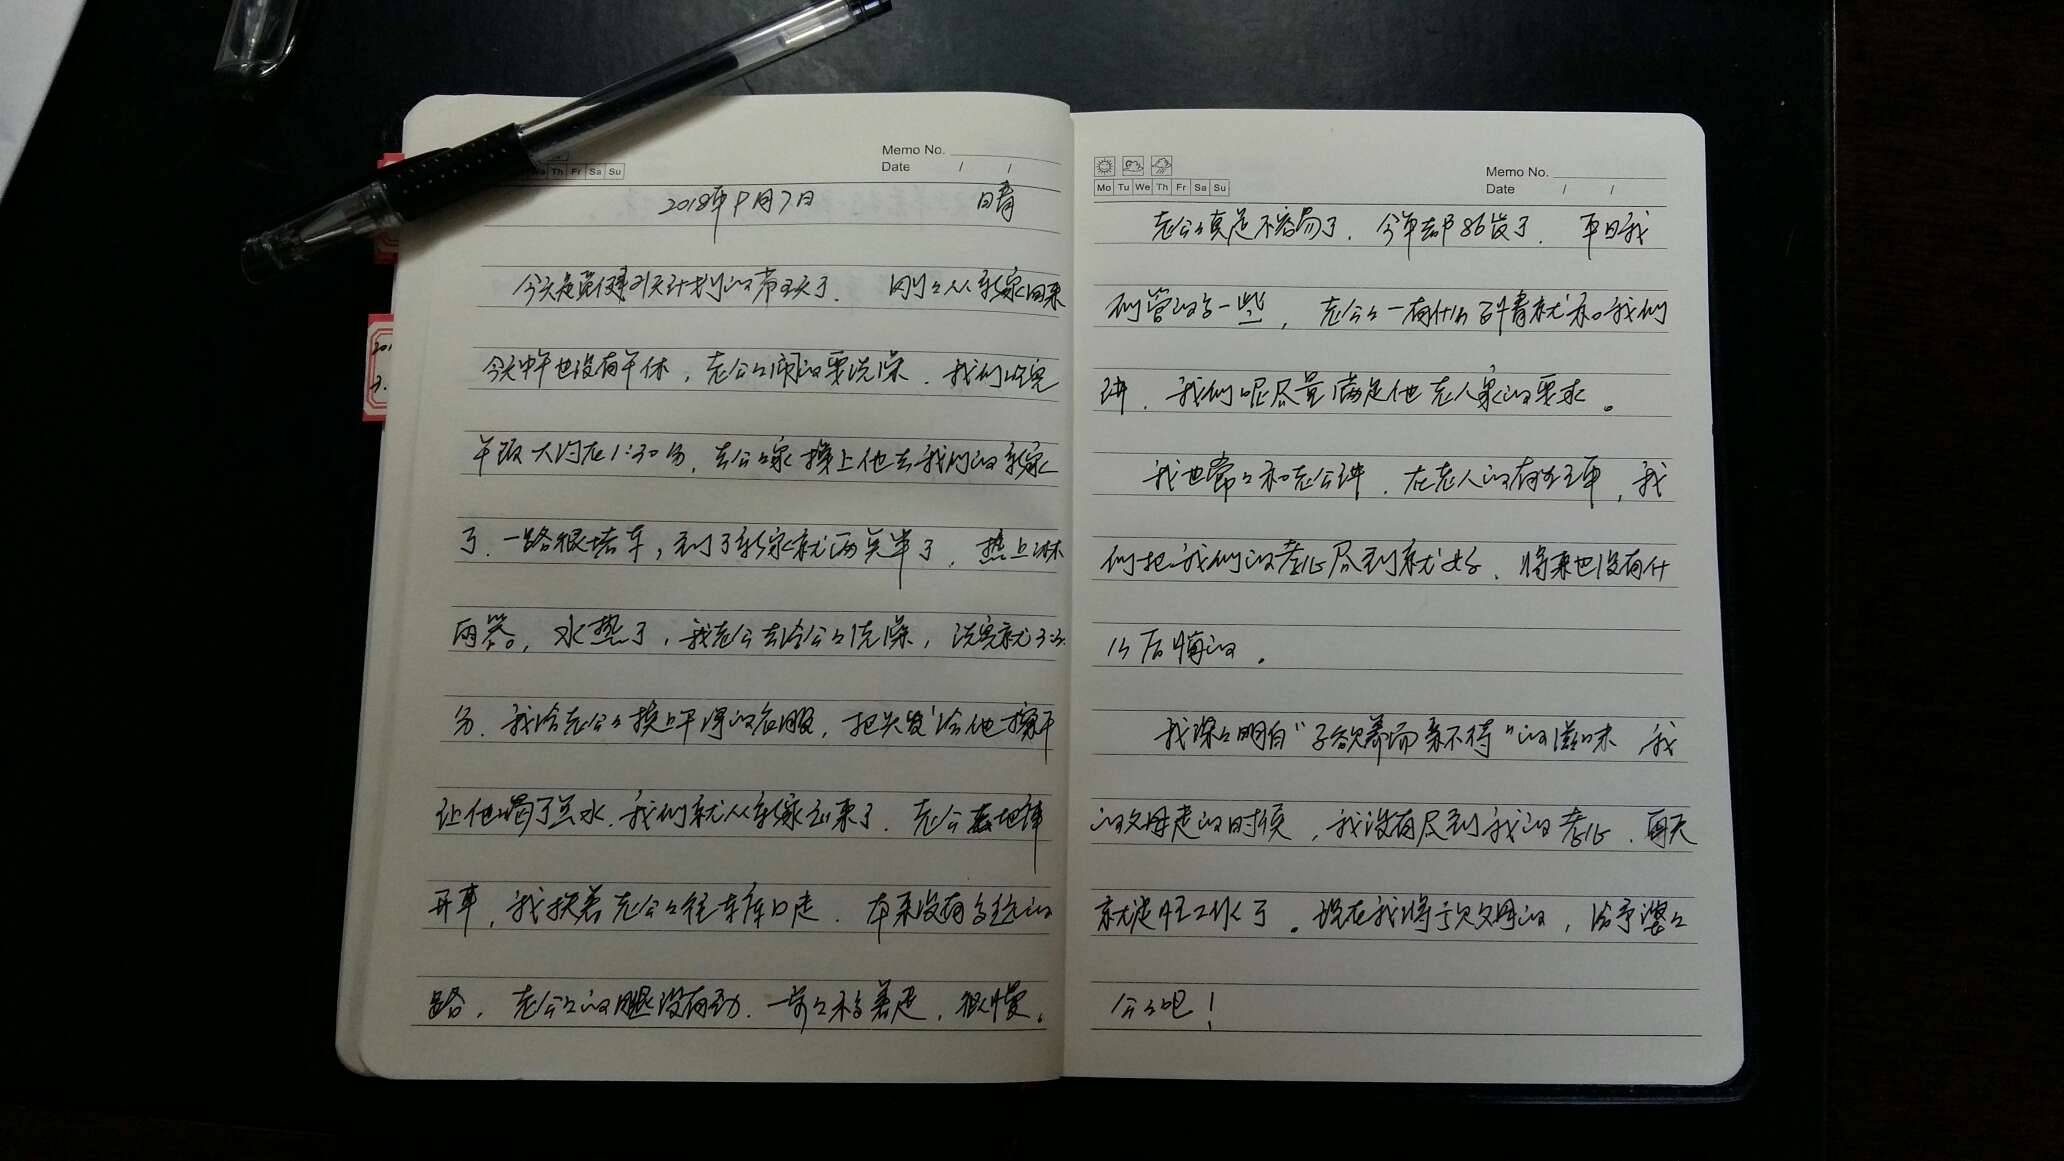 Memo No.
Date / /
We Th Fr Sa Su
2018年9月7日 晴
今天是第 21天计划的第五天了. 刚刚从新家回来
今天中午也没有午休, 老公公闹的要洗澡. 我们吃完
午饭大约在1:30分, 去公公家接上他去我们的新家
了. 一路很堵车, 到了新家就两点半了, 热上淋
雨器。水热了, 我老公去给公公洗澡, 洗完就3:30
分. 我给老公公换上干净的衣服, 把头发给他擦干
让他喝了点水. 我们就从新家出来了. 老公去地库
开车, 我扶着老公公往车库口走. 本来没有多远的
路. 老公公的腿没有劲. 一步步 着走, 很慢。
201
3.
Mo Tu We Th Fr Sa Su
Memo No.
Date / /
老公公真是不容易了. 今年都86岁了. 平日我
们管的多一些, 老公公一有什么事情就和我们
讲. 我们呢尽量满足他老人家的要求。
我也常常和老公讲. 在老人的有生之年, 我
们把我们的孝心尽到就好. 将来也没有什
么后悔的.
我深深明白“子欲养而亲不待”的滋味 我
的父母走的时候, 我没有尽到我的孝心. 每天
就是忙工作了。现在我将亏欠父母的, 给予婆婆
公公吧!